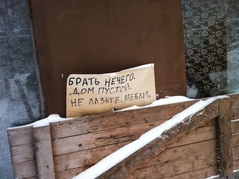 БРАТЬ НЕЧЕГО.
ДОМ ПУСТОЙ.
НЕ ЛАЗЬТЕ. МЕБЛИ.